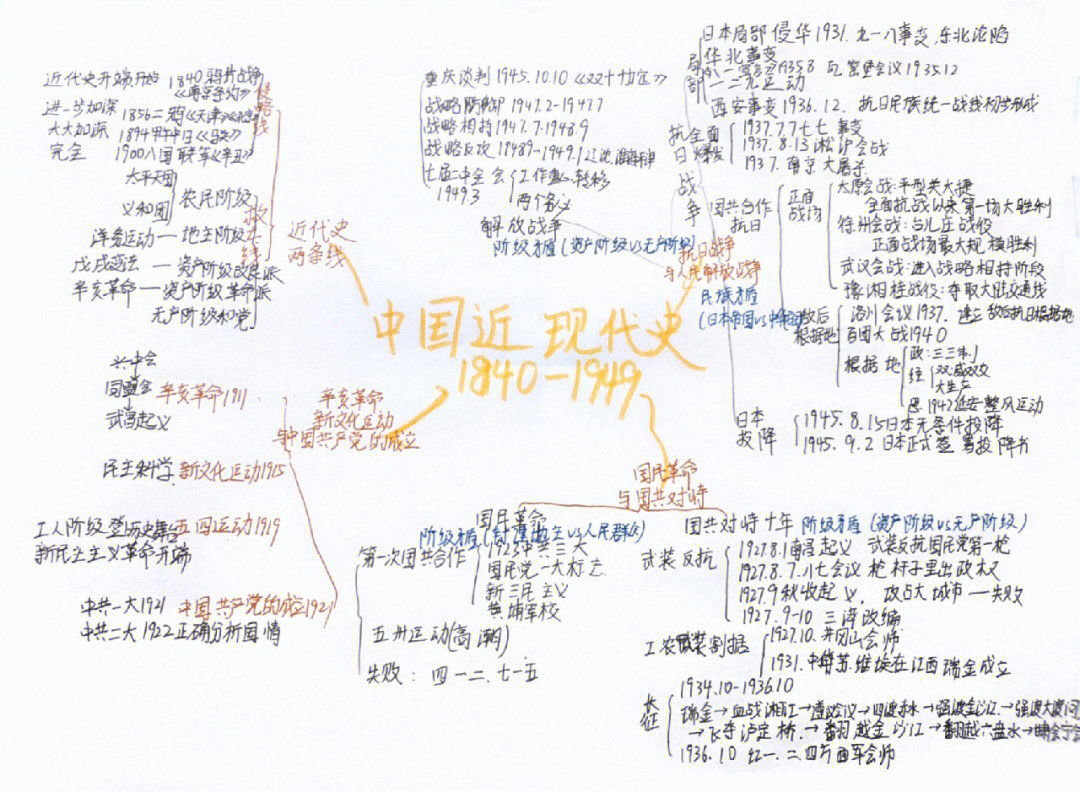 中国近现代史
1840-1949
近代史
两条线
侵略线
近代史开端,开始 1840鸦片战争
《南京条约》
进一步加深 1856二鸦《天津》《北京》
大大加深 1894甲午中日《马关》
完全 1900八国联军《辛丑》
救亡线
太平天国
义和团
农民阶级
洋务运动—地主阶级
戊戌变法—资产阶级改良派
辛亥革命—资产阶级革命派
无产阶级和党
辛亥革命
新文化运动
与中国共产党的成立
兴中会
同盟会 辛亥革命1911
武昌起义
民主科学 新文化运动1915
工人阶级登历史舞台 五四运动1919
新民主主义革命开端
中共一大1921 中国共产党的成立1921
中共二大1922正确分析国情
国民革命
与国共对峙
国民革命
阶级矛盾(封建地主vs人民群众)
第一次国共合作
1923中共三大
国民党一大标志
新三民主义
黄埔军校
五卅运动(高潮)
失败:四一二、七一五
国共对峙十年 阶级矛盾(资产阶级vs无产阶级)
武装反抗
1927.8.1南昌起义 武装反抗国民党第一枪
1927.8.7.八七会议 枪杆子里出政权
1927.9秋收起义,攻占大城市—失败
1927.9-10 三湾改编
工农武装割据
1927.10.井冈山会师
1931.中华苏维埃在江西瑞金成立
长征
1934.10-1936.10
瑞金→血战湘江→遵义会议→四渡赤水→强渡金沙江→强渡大渡河
→飞夺泸定桥.→翻越金沙江→翻越六盘水→会宁会
1936.10 红一、二四方面军会师
抗日战争
与人民解放战争
民族矛盾
(日本帝国vs中华民族)
阶级矛盾(资产阶级vs无产阶级)
解放战争
重庆谈判 1945.10.10《双十协定》
战略防御 1947.2-1947.7
战略相持 1947.7-1948.9
战略反攻 1948.9-1949.1辽沈、淮海、平津
七届二中全会
1949.3
工作重心转移
两个务必
抗日战争
局部
日本局部侵华1931.九一八事变,东北沦陷
华北事变
八一宣言1935.8 瓦窑堡会议1935.12
一二九运动
西安事变1936.12.抗日民族统一战线初步形成
全面
爆发
1937.7.7七七事变
1937.8.13淞沪会战
1937.南京大屠杀
国共合作
抗日
正面
战场
太原会战:平型关大捷
全面抗战以来第一场大胜利
徐州会战:台儿庄战役
正面战场最大规模胜利
武汉会战:进入战略相持阶段
豫湘桂战役:夺取大陆交通线
敌后
根据地
洛川会议1937.建立敌后抗日根据地
百团大战1940
根据地
政:三三制
经 双减双交
大生产
思.1942延安整风运动
日本
投降
1945.8.15日本无条件投降
1945.9.2日本正式签署投降书